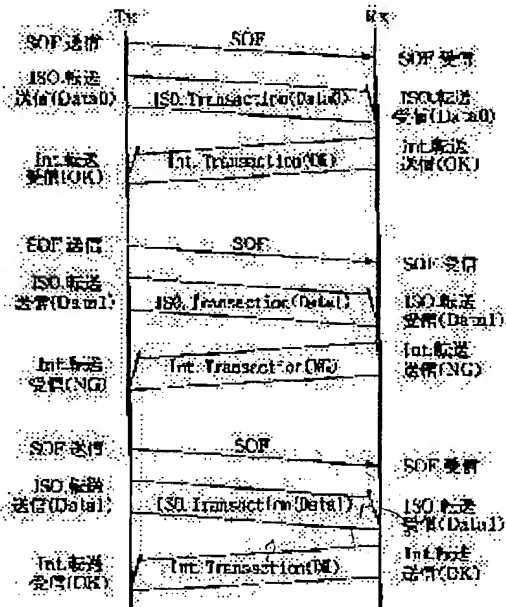 Tx
Rx
SOF 送信
SOF
SOF 受信
ISO.転送
送信(Data0)
ISO.Transaction(Data0)
ISO.転送
受信(Data0)
Int.転送
受信(OK)
Int.Transaction(OK)
Int.転送
送信(OK)
SOF 送信
SOF
SOF 受信
ISO.転送
送信(Data1)
ISO.Transaction(Data1)
ISO.転送
受信(Data1)
Int.転送
受信(NG)
Int.Transaction(NG)
Int.転送
送信(NG)
SOF 送信
SOF
SOF 受信
ISO.転送
送信(Data1)
ISO.Transaction(Data1)
ISO.転送
受信(Data1)
Int.転送
受信(OK)
Int.Transaction(OK)
Int.転送
送信(OK)